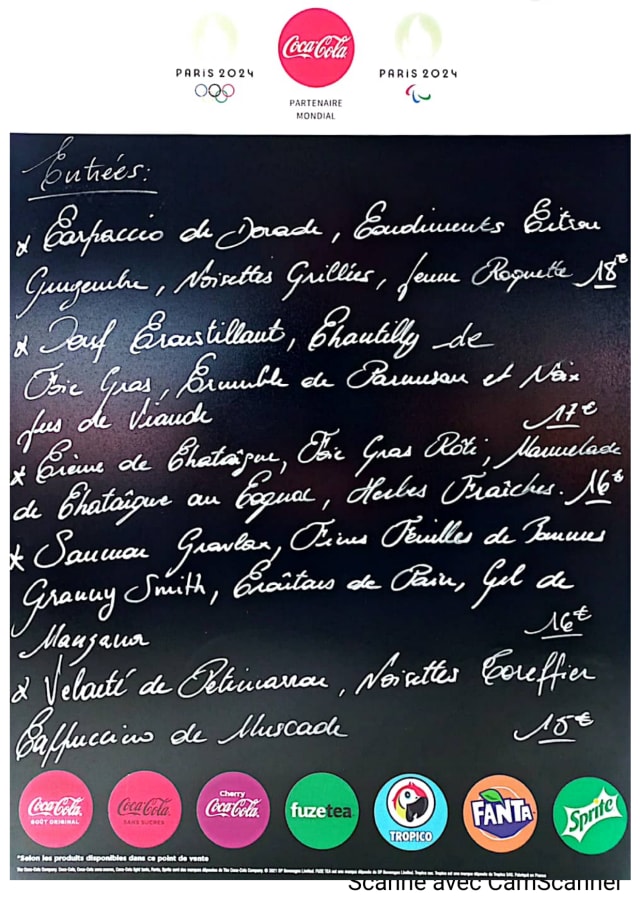 PARIS 2024
Coca-Cola
PARIS 2024
PARTENAIRE
MONDIAL
Entrées:
* Carpaccio de Dorade, Condiments Citron
Gingembre, Noisettes Grillées, Jeune Roquette 18€
* Oeuf Croustillant, Chantilly de
Foie Gras, Crumble de Parmesan et Noix
Jus de Viande 17€
* Crème de Chataîgne, Foie Gras Rôti, Marmelade
de Chataîgne au Cognac, Herbes Fraîches. 16€
* Saumon Gravlax, Fines Feuilles de Pommes
Granny Smith, Croûtons de Pain, Gel de
Manzana 16€
* Velouté de Potimarron, Noisettes Torréfiées
Cappuccino de Muscade 15€
Coca-Cola GOÛT ORIGINAL
Coca-Cola SANS SUCRES
Cherry Coca-Cola
fuzetea
TROPICO
FANTA
Sprite
*Selon les produits disponibles dans ce point de vente
Scanné avec CamScanner